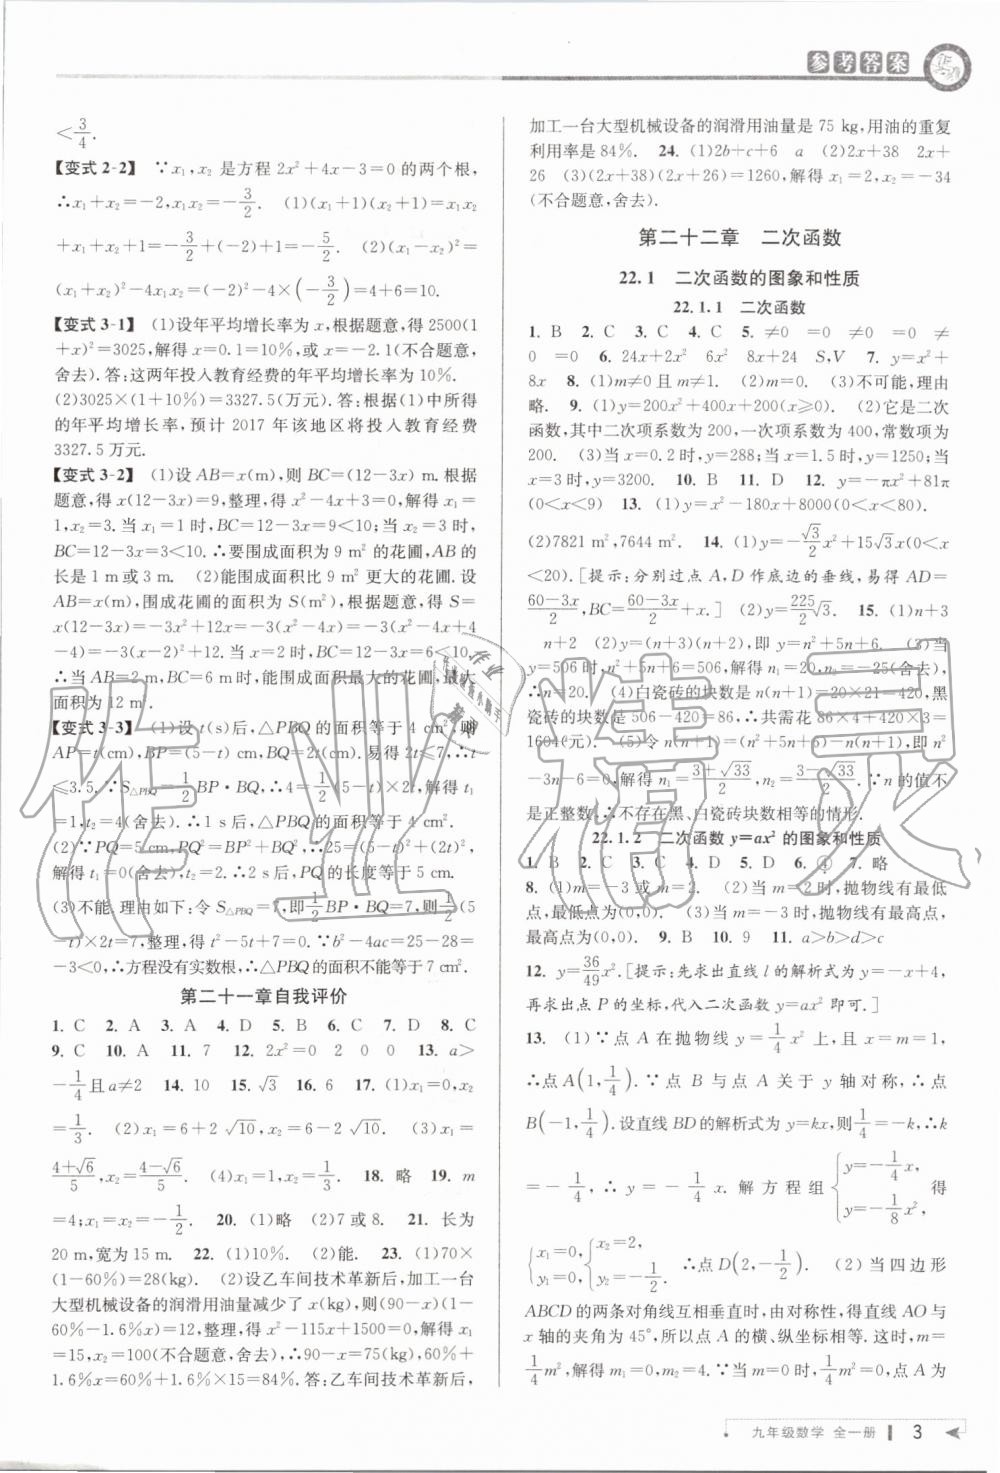 参考答案
<3/4.
【变式 2-2】 ∵x₁,x₂ 是方程 2x²+4x-3=0 的两个根,
∴x₁+x₂=-2,x₁x₂=-3/2. (1)(x₁+1)(x₂+1)=x₁x₂
+x₁+x₂+1=-3/2+(-2)+1=-5/2. (2)(x₁-x₂)²=
(x₁+x₂)²-4x₁x₂=(-2)²-4×(-3/2)=4+6=10.
【变式 3-1】 (1)设年平均增长率为 x,根据题意,得 2500(1
+x)²=3025,解得 x=0.1=10%,或 x=-2.1(不合题意,
舍去).答:这两年投入教育经费的年平均增长率为 10%.
(2)3025×(1+10%)=3327.5(万元).答:根据(1)中所得
的年平均增长率,预计 2017 年该地区将投入教育经费
3327.5 万元.
【变式 3-2】 (1)设 AB=x(m),则 BC=(12-3x) m.根据
题意,得 x(12-3x)=9,整理,得 x²-4x+3=0,解得 x₁=
1,x₂=3.当 x₁=1 时,BC=12-3x=9<10;当 x₂=3 时,
BC=12-3x=3<10.∴要围成面积为 9 m² 的花圃,AB 的
长是 1 m或 3 m. (2)能围成面积比 9 m² 更大的花圃.设
AB=x(m),围成花圃的面积为 S(m²),根据题意,得 S=
x(12-3x)=-3x²+12x=-3(x²-4x)=-3(x²-4x+4
-4)=-3(x-2)²+12.由题意,得 x>0,12-3x≤10.
∴当 AB=2 m,BC=6 m时,能围成面积最大的花圃,最大
面积为 12 m².
【变式 3-3】 (1)设 t(s)后,△PBQ 的面积等于 4 cm²,则
AP=t(cm),BP=(5-t)(cm),BQ=2t(cm).易得 2t≤7,∴t
≤3.5.∵S△PBQ=1/2BP·BQ,∴4=1/2(5-t)×2t,解得 t₁
=1,t₂=4(舍去).∴1 s 后,△PBQ 的面积等于 4 cm².
(2)∵PQ=5 cm,PQ²=BP²+BQ²,∴25=(5-t)²+(2t)²,
解得 t₁=0(舍去),t₂=2.∴2 s 后,PQ 的长度等于 5 cm.
(3)不能.理由如下:令 S△PBQ=7,即1/2BP·BQ=7,则1/2(5
-t)×2t=7,整理,得 t²-5t+7=0.∵b²-4ac=25-28=
-3<0,∴方程没有实数根,∴△PBQ 的面积不能等于 7 cm².
第二十一章自我评价
1. C 2. A 3. A 4. D 5. B 6. D 7. D 8. C
9. C 10. A 11. 7 12. 2x²=0 2 0 0 13. a>
-1/4且 a≠2 14. 10 15. √3 16. 6 17. (1)x₁=0,x₂=
1/3. (2)x₁=6+2√10,x₂=6-2√10. (3)x₁=
(4+√6)/5,x₂=(4-√6)/5. (4)x₁=1,x₂=1/3. 18. 略 19. m
=4;x₁=x₂=-1/2. 20. (1)略 (2)7 或 8. 21. 长为
20 m,宽为 15 m. 22. (1)10%. (2)能. 23. (1)70×
(1-60%)=28(kg). (2)设乙车间技术革新后,加工一台
大型机械设备的润滑用油量减少了 x(kg),则(90-x)(1-
60%-1.6%x)=12,整理,得 x²-115x+1500=0,解得 x₁
=15,x₂=100(不合题意,舍去),∴90-x=75(kg),60%+
1.6%x=60%+1.6%×15=84%.答:乙车间技术革新后,
加工一台大型机械设备的润滑用油量是 75 kg,用油的重复
利用率是 84%. 24. (1)2b+c+6 a (2)2x+38 2x+
26 (3)(2x+38)(2x+26)=1260,解得 x₁=2,x₂=-34
(不合题意,舍去).
第二十二章 二次函数
22.1 二次函数的图象和性质
22.1.1 二次函数
1. B 2. C 3. C 4. C 5. ≠0 =0 ≠0 =0 ≠
0 =0 =0 6. 24x+2x² 6x² 8x+24 S,V 7. y=x²+
8x 8. (1)m≠0 且 m≠1. (2)m=0. (3)不可能,理由
略. 9. (1)y=200x²+400x+200(x≥0). (2)它是二次
函数,其中二次项系数为 200,一次项系数为 400,常数项为
200. (3)当 x=0.2 时,y=288;当 x=0.5 时,y=450;当
x=3 时,y=3200. 10. B 11. D 12. y=-πx²+81π
(0<x<9) 13. (1)y=x²-180x+8000(0<x<80).
(2)7821 m²,7644 m². 14. (1)y=-√3/2x²+15√3x(0<x
<20).[提示:分别过点 A,D 作底边的垂线,易得 AD=
(60-3x)/2,BC=(60-3x)/2+x.] (2)y=225/2√3. 15. (1)n+3
n+2 (2)y=(n+3)(n+2),即 y=n²+5n+6. (3)当
y=506 时,n²+5n+6=506,解得 n₁=20,n₂=-25(舍去),
∴n=20. (4)白瓷砖的块数是 n(n+1)=20×21=420,黑
瓷砖的块数是 506-420=86,∴共需花 86×4+420×3=
1604(元). (5)令 n(n+1)=n²+5n+6-n(n+1),即 n²
-3n-6=0,解得 n₁=(3+√33)/2,n₂=(3-√33)/2.∵n 的值不
是正整数,∴不存在黑、白瓷砖块数相等的情形.
22.1.2 二次函数 y=ax² 的图象和性质
1. B 2. C 3. C 4. D 5. D 6. ④ 7. 略
8. (1)m=-3 或 m=2. (2)当 m=2 时,抛物线有最低
点,最低点为(0,0). (3)当 m=-3 时,抛物线有最高点,
最高点为(0,0). 9. B 10. 9 11. a>b>d>c
12. y=36/49x².[提示:先求出直线 l 的解析式为 y=-x+4,
再求出点 P 的坐标,代入二次函数 y=ax² 即可.]
13. (1)∵点 A 在抛物线 y=1/4x² 上,且 x=m=1,
∴点 A(1,1/4).∵点 B 与点 A 关于 y 轴对称,∴点
B(-1,1/4).设直线 BD 的解析式为 y=kx,则1/4=-k,∴k
=-1/4,∴y=-1/4x.解方程组{y=-1/4x,y=-1/8x²,得
{x₁=0,y₁=0,{x₂=2,y₂=-1/2.∴点 D(2,-1/2). (2)当四边形
ABCD 的两条对角线互相垂直时,由对称性,得直线 AO 与
x 轴的夹角为 45°,所以点 A 的横、纵坐标相等.这时,m=
1/4m²,解得 m₁=0,m₂=4.∵当 m=0 时,点 A 为
九年级数学 全一册 3
作业精灵